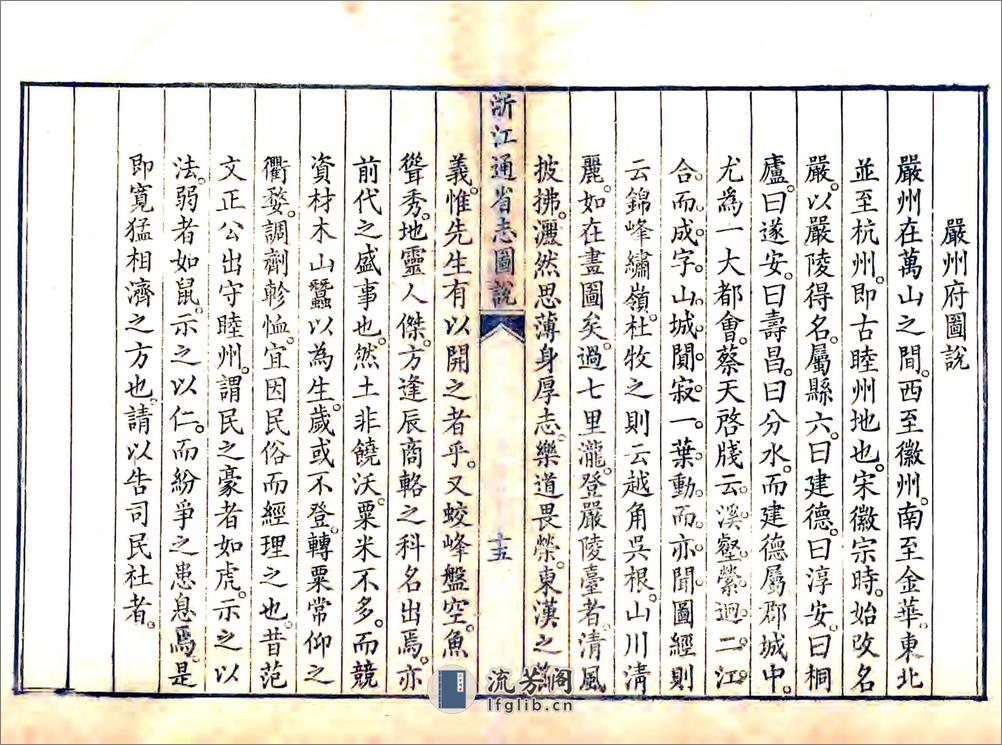 嚴州府圖說
嚴州在萬山之間。西至徽州。南至金華。東北
並至杭州。即古睦州地也。宋徽宗時。始改名
嚴。以嚴陵得名。屬縣六。曰建德。曰淳安。曰桐
廬。曰遂安。曰壽昌。曰分水。而建德屬郡城中。
尤為一大都會。蔡天啓牋云。溪壑縈迴。二江
合而成字。山城闃寂。一葉動而亦聞。圖經則
云錦峰繡嶺。杜牧之則云越角吳根。山川清
麗。如在畫圖矣。過七里瀧。登嚴陵臺者。清風
披拂。灑然思薄身厚志。樂道畏榮。東漢之節
浙江通省志圖說
十五
義惟先生有以開之者乎。又蛟峰盤空。魚
聳秀。地靈人傑。方逢辰商輅之科名出焉。亦
前代之盛事也。然土非饒沃。粟米不多。而競
資材木山蠶以為生。歲或不登。轉粟常仰之
衢婺。調劑軫恤。宜因民俗而經理之也。昔范
文正公出守睦州。謂民之豪者如虎。示之以
法。弱者如鼠。示之以仁。而紛爭之患息焉。是
即寬猛相濟之方也。請以告司民社者。
流芳閣
lfglib.cn